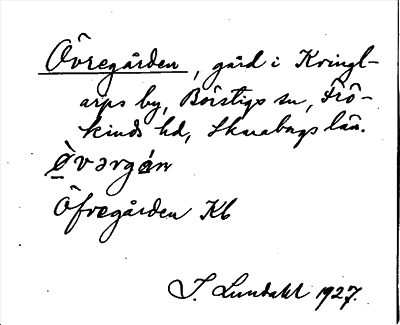 Övregården, gård i Kvingl-
arps by, Börstigs sn, Frö-
kinds hd, Skaraborgs län.
Övərgán
Öfvegården Kb
J. Lundahl 1927.